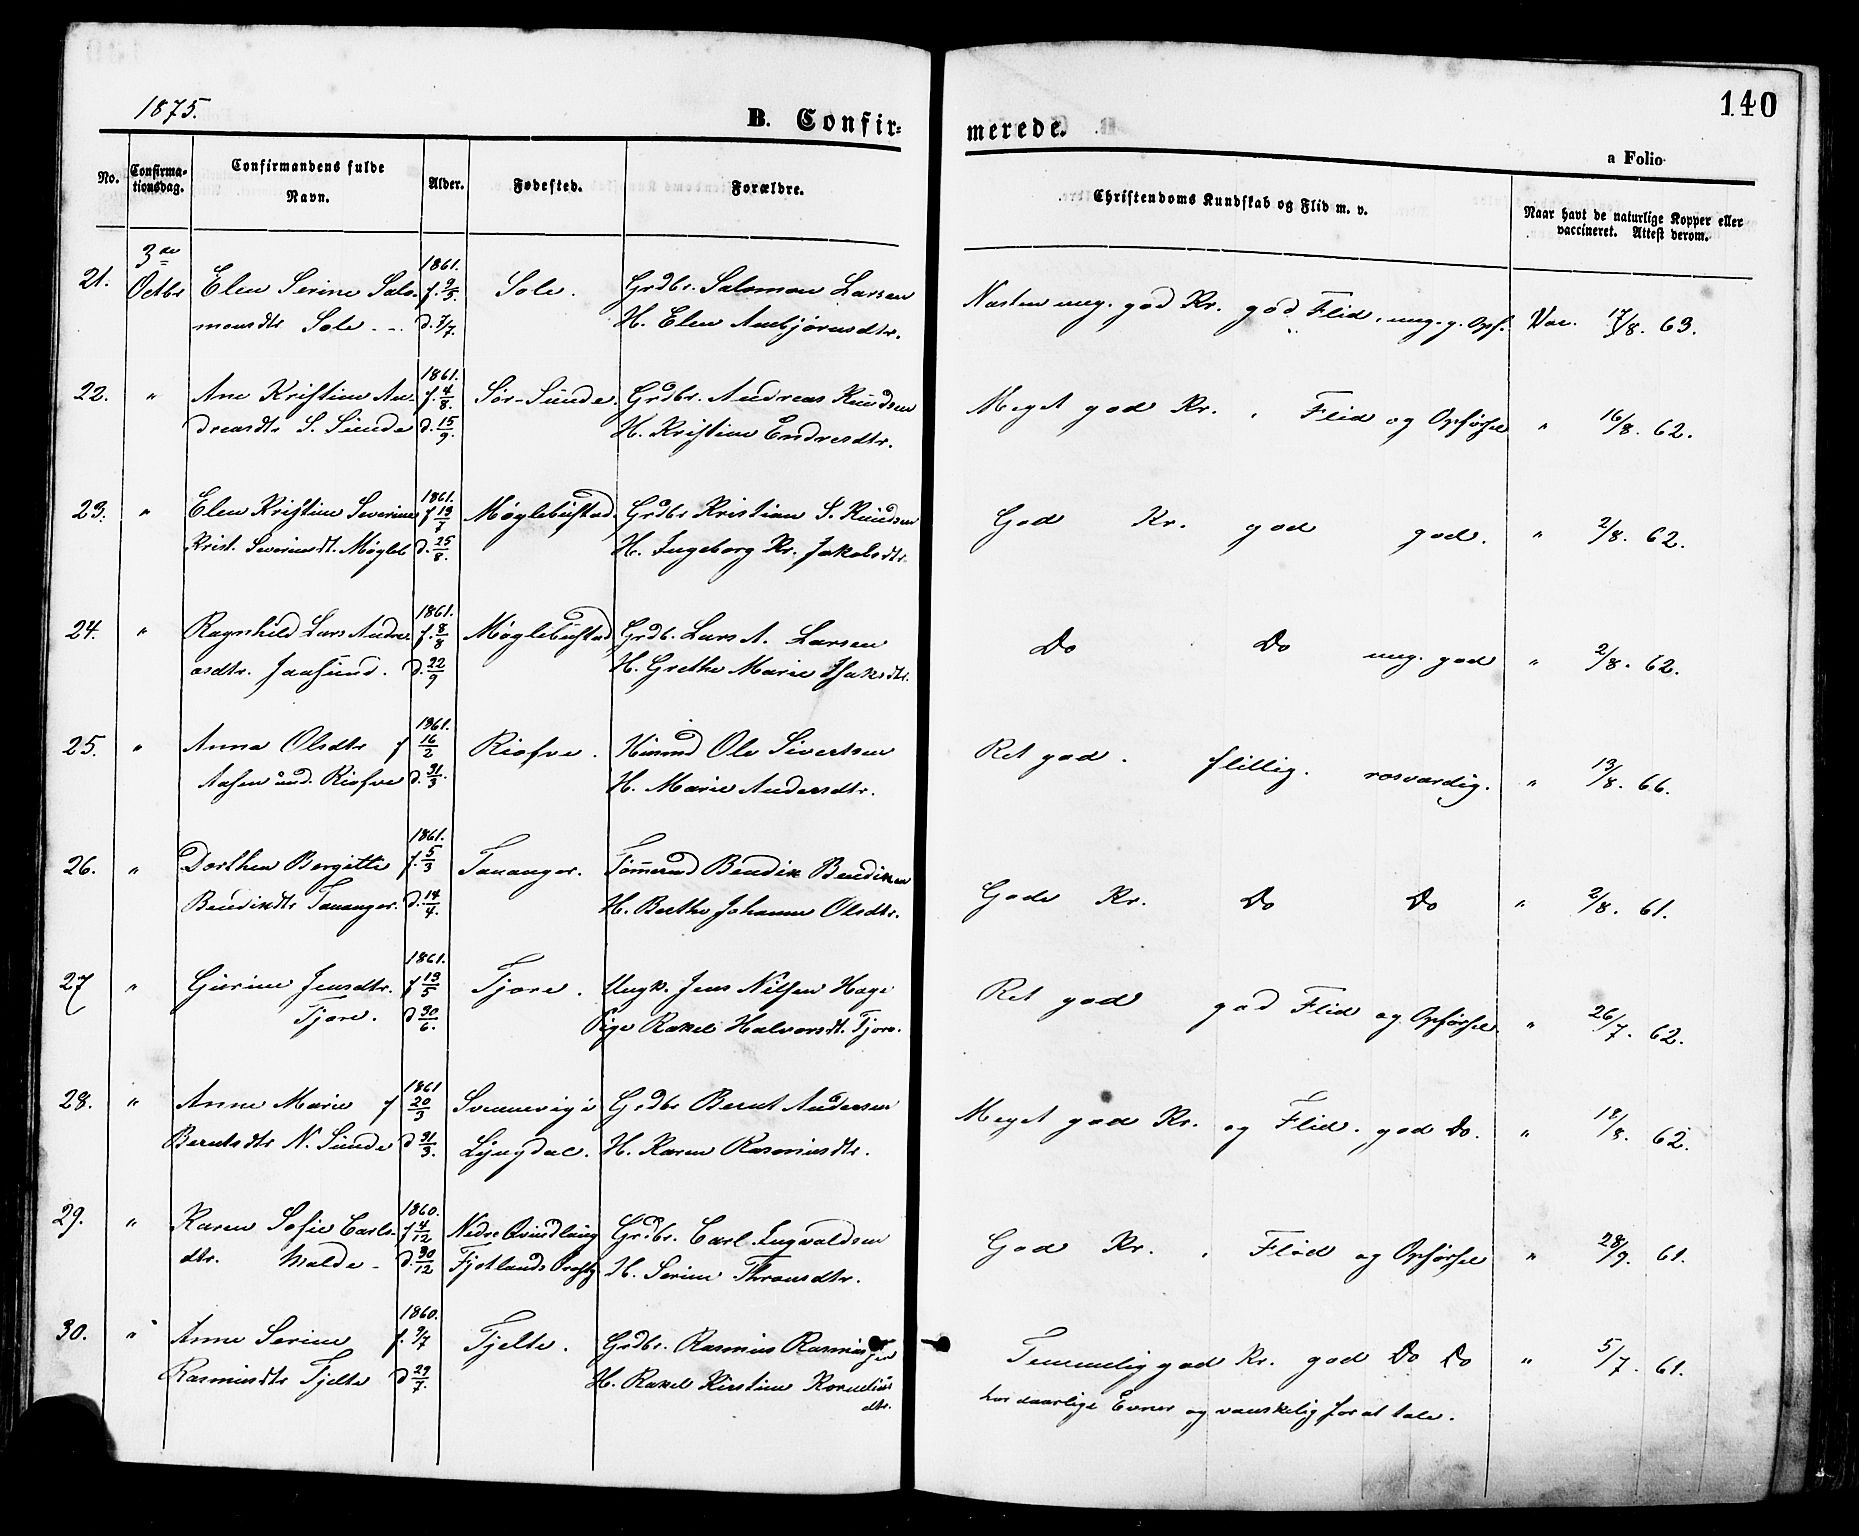 1875.
B. Confir-
merede.
140
a Folio
No.
Confirma-
tionsdag.
Confirmandens fulde
Navn.
Alder.
Fødested.
Forældre.
Christendoms Kundskab og Flid m. v.
Naar havt de naturlige Kopper eller
vaccineret. Attest derom.
21. 3de Octbr Elen Serine Salo- 1861. f. 9/5 Sole. Grdbr. Salomon Larsen Næsten meg. god Kr. god Flid, meg. g. Opf. Vac. 17/8. 63.
monsdtr Sole d. 7/7 H. Elen Asbjørnsdtr.
22. " Ane Kristine An- 1861. f. 4/8. Sør-Sunde. Grdbr. Andreas Knudsen Meget god Kr. , Flid og Opførsel " 16/8. 62.
dreasdtr S. Sunde d. 15/9. H. Kristine Endresdtr.
23. " Elen Kristine Severine 1861. f 13/7 Møglebustad. Grdbr Kristian S. Knudsen God Kr. god god. " 2/8. 62.
Krist. Severinsdt. Mögleb d. 25/8. H. Ingeborg Kr. Jakobsdtr.
24. " Ragnhild Lars Andre 1861. f. 8/8 Møglebustad Grdb. Lars A. Larsen Do Do meg. god " 2/8. 62.
asdtr. Jaasund. d. 22/9 H. Grethe Marie Isaksdtr.
25. " Anna Olsdtr f 1861. 16/2 Risfve. Husmd Ole Sivertsen Ret god. flittig. rosværdig. " 13/8. 66.
Aasen und. Risfve d. 31/3. H. Marie Andersdtr.
26. " Dorthea Bergitte 1861. f. 5/3 Tananger. Tømmermd Bendik Bendiksen Gode Kr. Do Do " 2/8. 61.
Bendiksdtr Tananger. d. 14/4. H. Berthe Johanne Olsdtr.
27 " Gurine Jensdtr. 1861. f 13/5 Tjore. Ungk. Jens Nilsen Haga Ret god god Flid og Opførsel " 26/7. 62.
Tjore. d 30/6. Pige Rakel Halvorsdt. Tjora.
28. " Anne Marie f 1861 20/3 Svennevig i Grdbr Bernt Andersen Meget god Kr. og Flid. god Do. " 18/8. 62.
Berntsdtr N. Sunde d 31/3. Lyngdal. H. Karen Rasmusdtr.
29. " Karen Sofie Carls- 1860. f 4/12 Nedre Qvindlaug Grdbr. Carl Ingvaldsen God Kr. , Flid og Opførsel " 28/9. 61.
dtr. Malde d. 30/12 Fjotlands Præstg H. Serine Thronsdtr.
30. " Anne Serine 1860. f. 9/7 Tjelte. Grdbr. Rasmus Rasmussen Temmelig god Kr. god Do Do " 5/7. 61.
Rasmusdtr Tjelte d 29/7. H. Rakel Kirstine Kornelius
dtr.
har daarlige Evner og vanskelig for at tale.